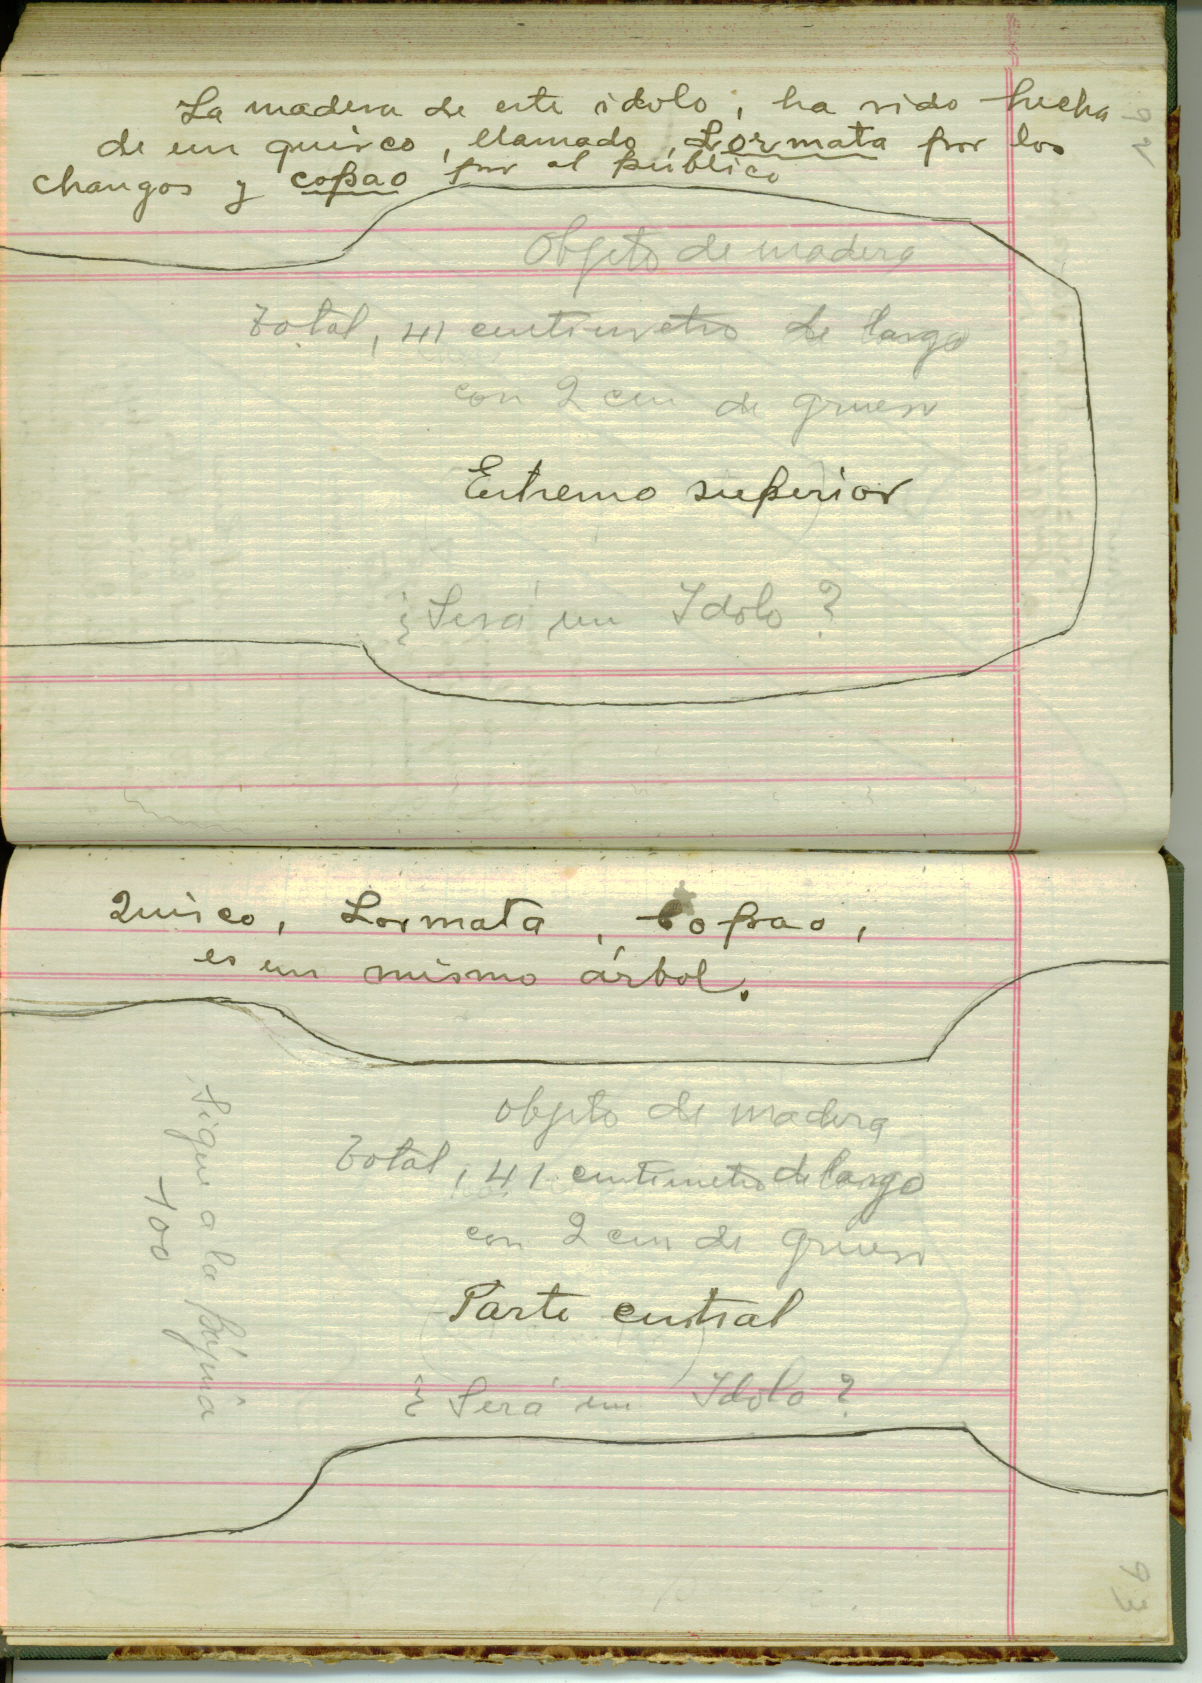 La madera de este idolo, ha sido hecha
de un quisco, llamado, Lormata por los
changos y copao por el público
Objeto de madera
Total, 41 centimetro de largo
con 2 cm de grueso
Extremo superior
¿Será un Idolo?
92
Quisco, Lormata, Copao,
es un mismo árbol.
objeto de madera
Total, 41 centimetro de largo
con 2 cm de grueso
Parte central
¿Será un Idolo?
Sigue a la página
100
93